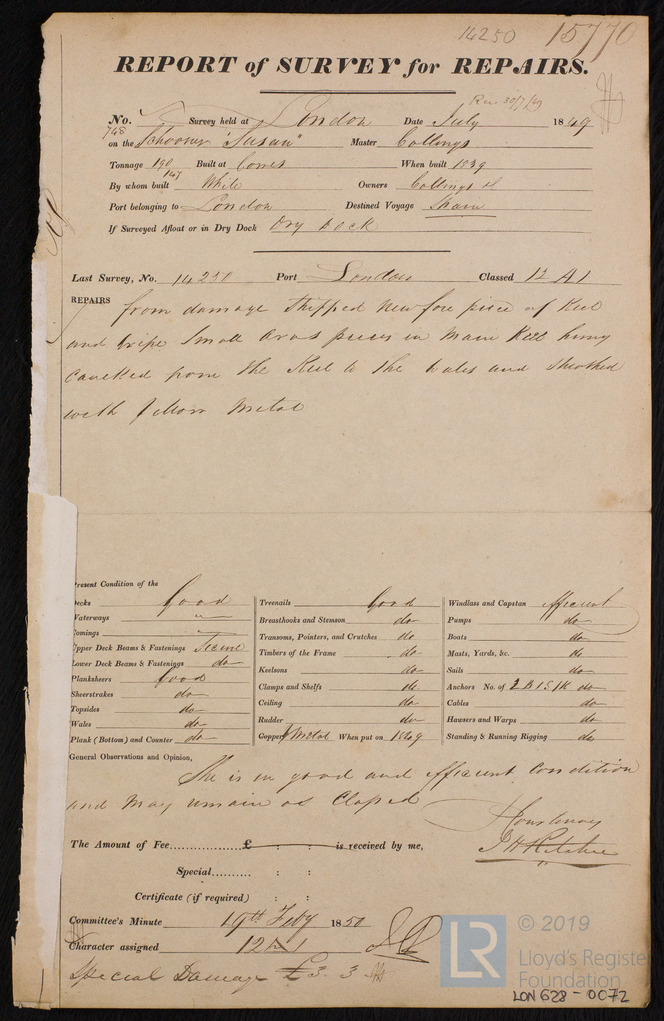 14250 15770
REPORT of SURVEY for REPAIRS.
Rec 30/7/49
No. 748 Survey held at London Date July 1849
on the Schooner "Susan" Master Collings
Tonnage 190 147 Built at Cowes When built 1839
By whom built White Owners Collings &
Port belonging to London Destined Voyage
If Surveyed Afloat or in Dry Dock Dry Dock
Last Survey, No. 14250 Port London Classed 12 A1
REPAIRS from damage Shipped New fore piece of Keel
and Gripe Small Cross pieces in Main Keel having
Caulked from the Keel to the Wales and Sheathed
with Yellow Metal
Present Condition of the
Decks Good
Waterways "
Comings "
Upper Deck Beams & Fastenings Secure
Lower Deck Beams & Fastenings do
Planksheers Good
Sheerstrakes do
Topsides do
Wales do
Plank (Bottom) and Counter do
Treenails Good
Breasthooks and Stemson do
Transoms, Pointers, and Crutches do
Timbers of the Frame do
Keelsons do
Clamps and Shelfs do
Ceiling do
Rudder do
Copper Y Metal When put on 1849
Windlass and Capstan Efficient
Pumps do
Boats do
Masts, Yards, &c. do
Sails do
Anchors No. of 2B 1S 1K do
Cables do
Hawsers and Warps do
Standing & Running Rigging do
General Observations and Opinion,
She is in good and efficient Condition
and May remain as Classed
The Amount of Fee.............. £ : : is received by me,
J H Ritchie
Special......... : :
Certificate (if required) : :
Committee's Minute 19th Feby 1850
Character assigned 12 A1
Special Damage £3. 3
LR
© 2019
Lloyd's Register
Foundation
LON 628 - 0072